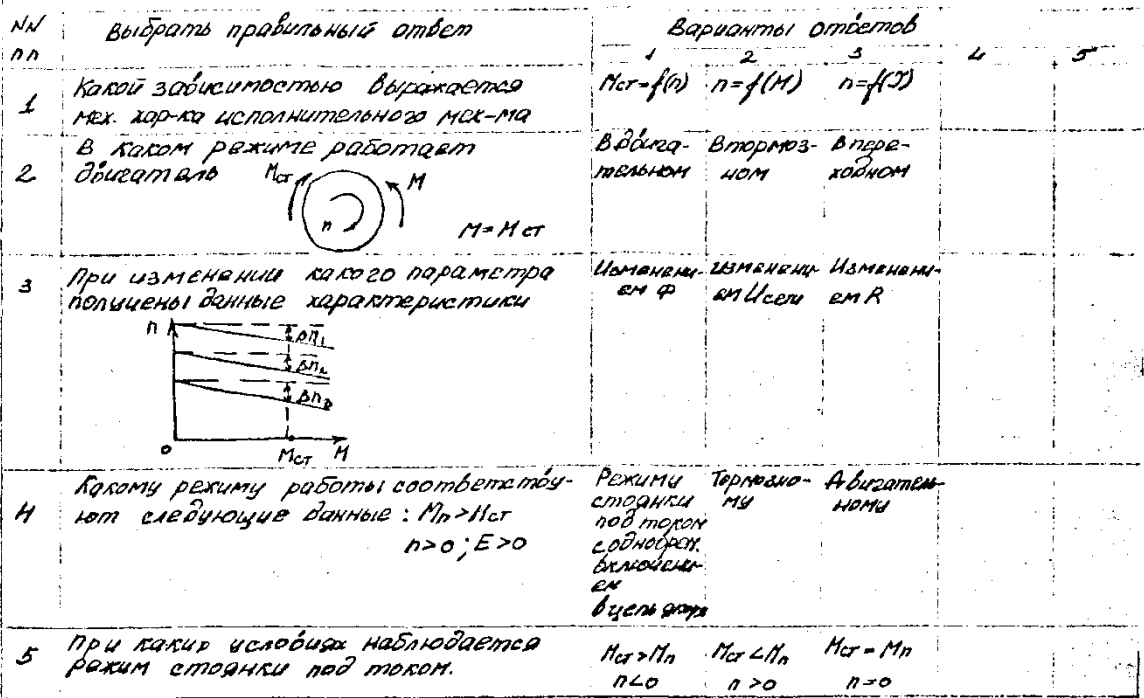 NN Выбрать правильный ответ Варианты ответов
пп 1 2 3 4 5
1 Какой зависимостью выражается
мех. хар-ка исполнительного мех-ма
Mст=f(n) n=f(M) n=f(J)
2 В каком режиме работает
двигатель
Mст M
n
M=Mст
В двига-
тельном
В тормоз-
ном
В пере-
ходном
3 При изменении какого параметра
получены данные характеристики
n
Δn₁
Δn₂
Δn₃
0 Mст M
Изменени-
ем Ф
изменени-
ем Uсети
Изменени-
ем R
4 Какому режиму работы соответству-
ют следующие данные: Mп>Mст
n>0; E>0
Режиму
стоянки
под током
с одноврем.
включени-
ем
в цепь
Тормозно-
му
Двигатель-
ному
5 При каких условиях наблюдается
режим стоянки под током.
Mст>Mп
n<0
Mст<Mп
n>0
Mст=Mп
n=0